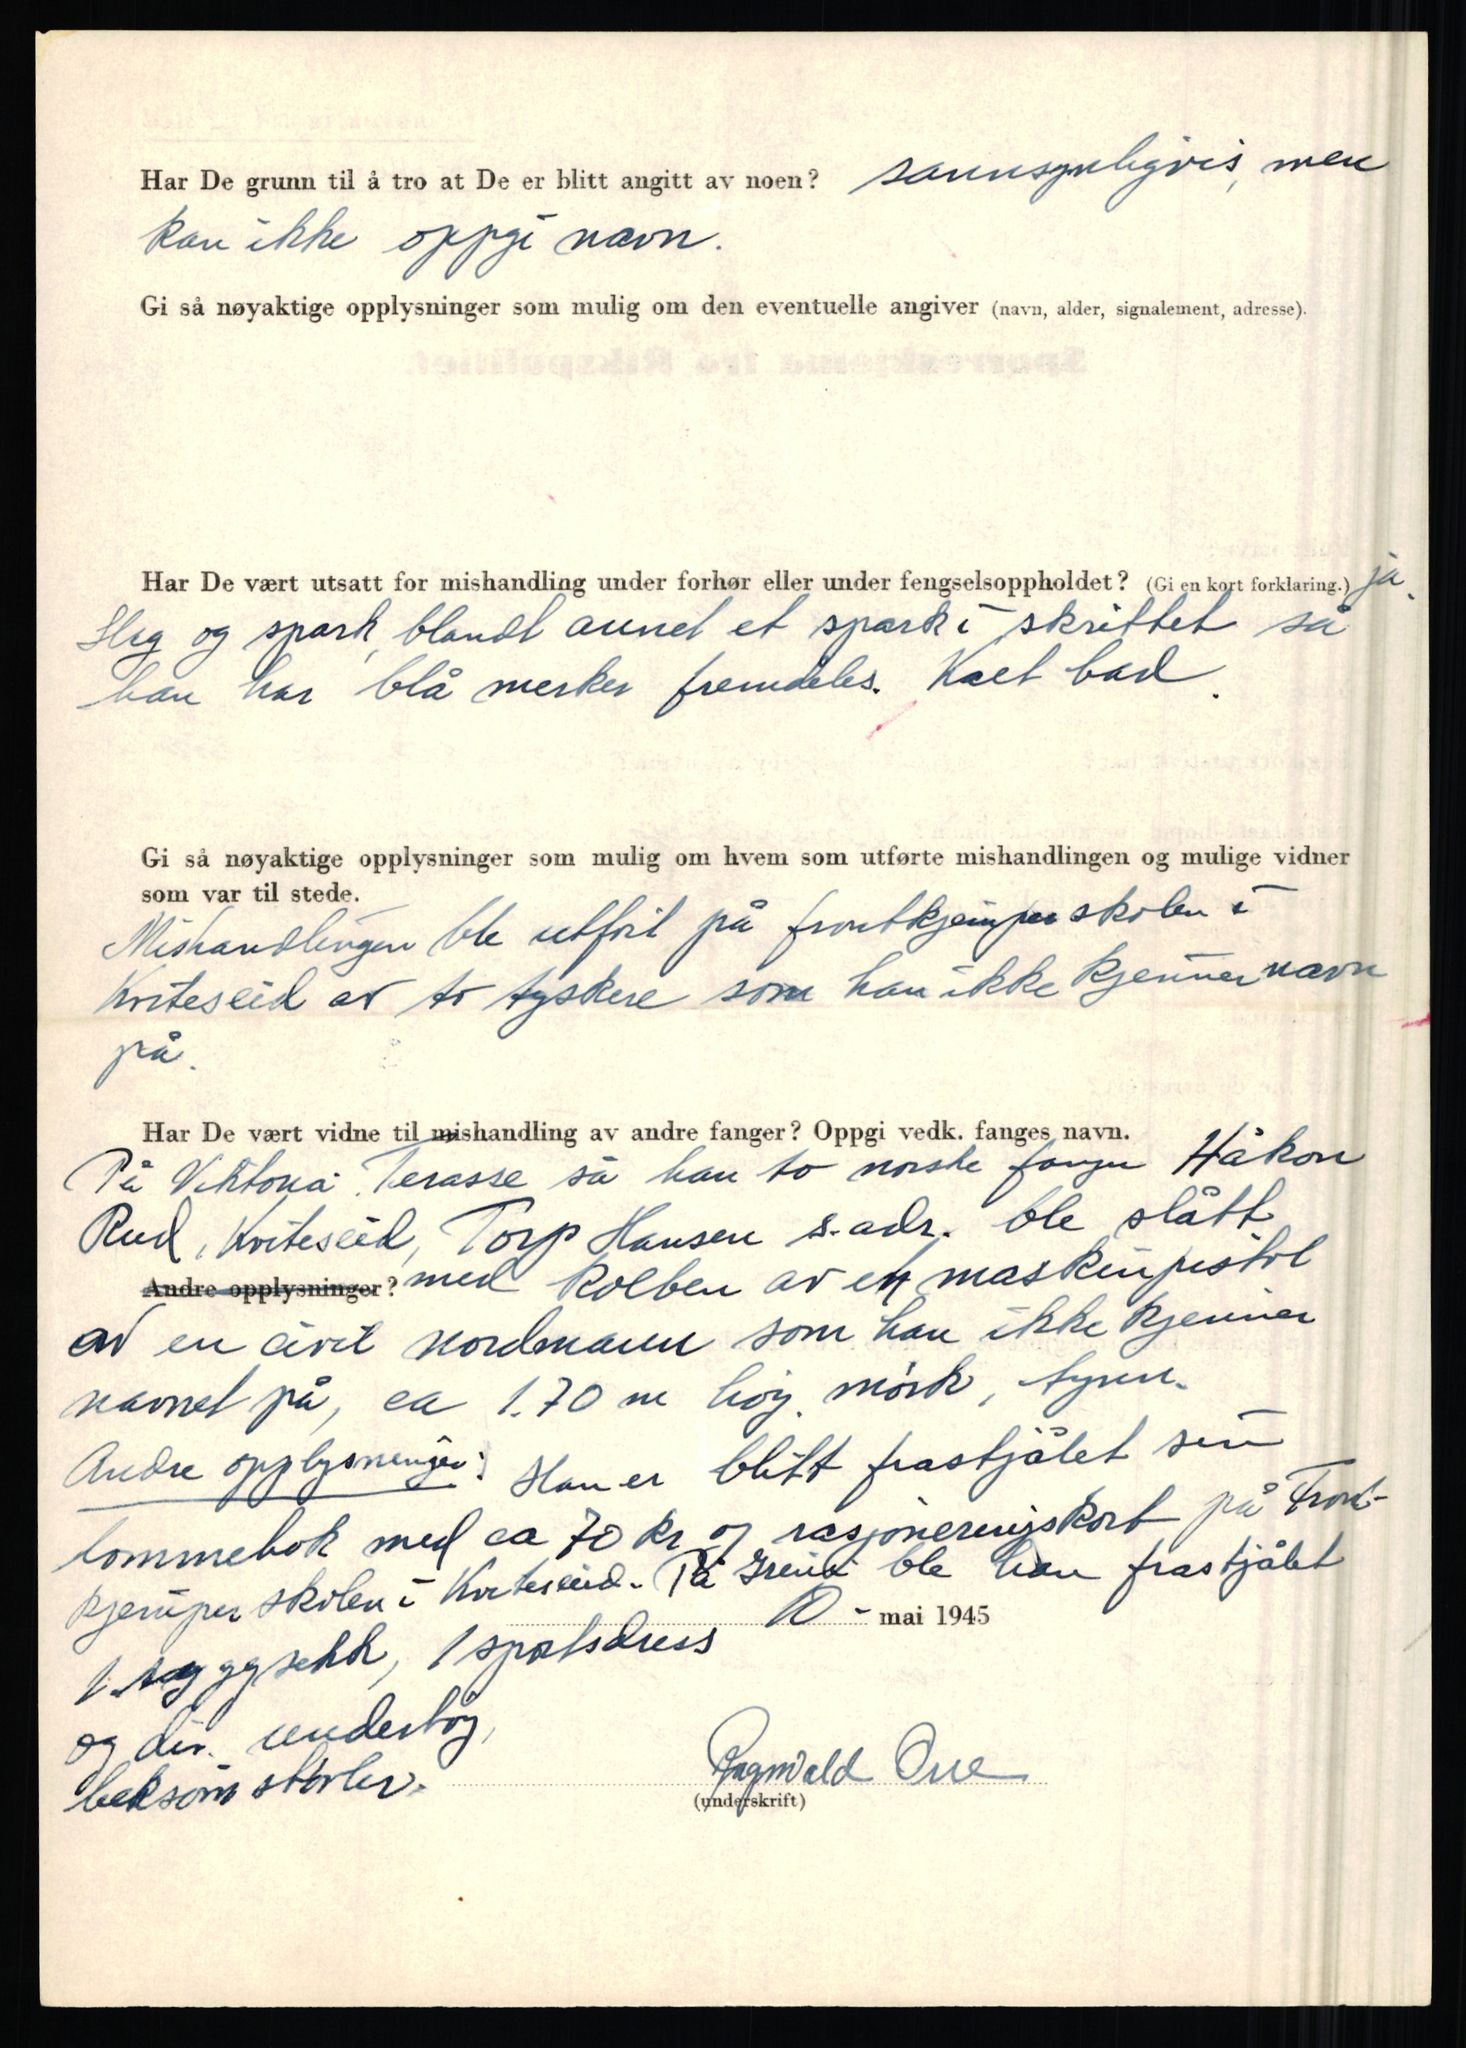 Har De grunn til å tro at De er blitt angitt av noen? sannsynligvis, men
kan ikke oppgi navn.
Gi så nøyaktige opplysninger som mulig om den eventuelle angiver (navn, alder, signalement, adresse).
Har De vært utsatt for mishandling under forhør eller under fengselsoppholdet? (Gi en kort forklaring.) ja.
Slag og spark, blandt annet et spark i skrittet så
han har blå merker fremdeles. Kalt bad.
Gi så nøyaktige opplysninger som mulig om hvem som utførte mishandlingen og mulige vidner
som var til stede.
Mishandlingen ble utført på frontkjemperskolen i
Kviteseid av to tyskere som han ikke kjenner navn
på.
Har De vært vidne til mishandling av andre fanger? Oppgi vedk. fanges navn.
På Viktoria Terasse så han to norske fanger Håkon
Rud, Kviteseid, Torp Hansen s. adr. ble slått
Andre opplysninger? med kolben av en maskinpistol
av en civil nordmann som han ikke kjenner
navnet på, ca 1.70 m høy, mørk, tynn.
Andre opplysninger: Han er blitt frastjålet sin
lommebok med ca 70 kr og rasjoneringskort på Front-
kjemperskolen i Kviteseid. På Grini ble han frastjålet
10 - mai 1945
1 ryggsekk, 1 sportsdress
og div. undertøy,
beksømstøvler.
Ragnvald
(underskrift)